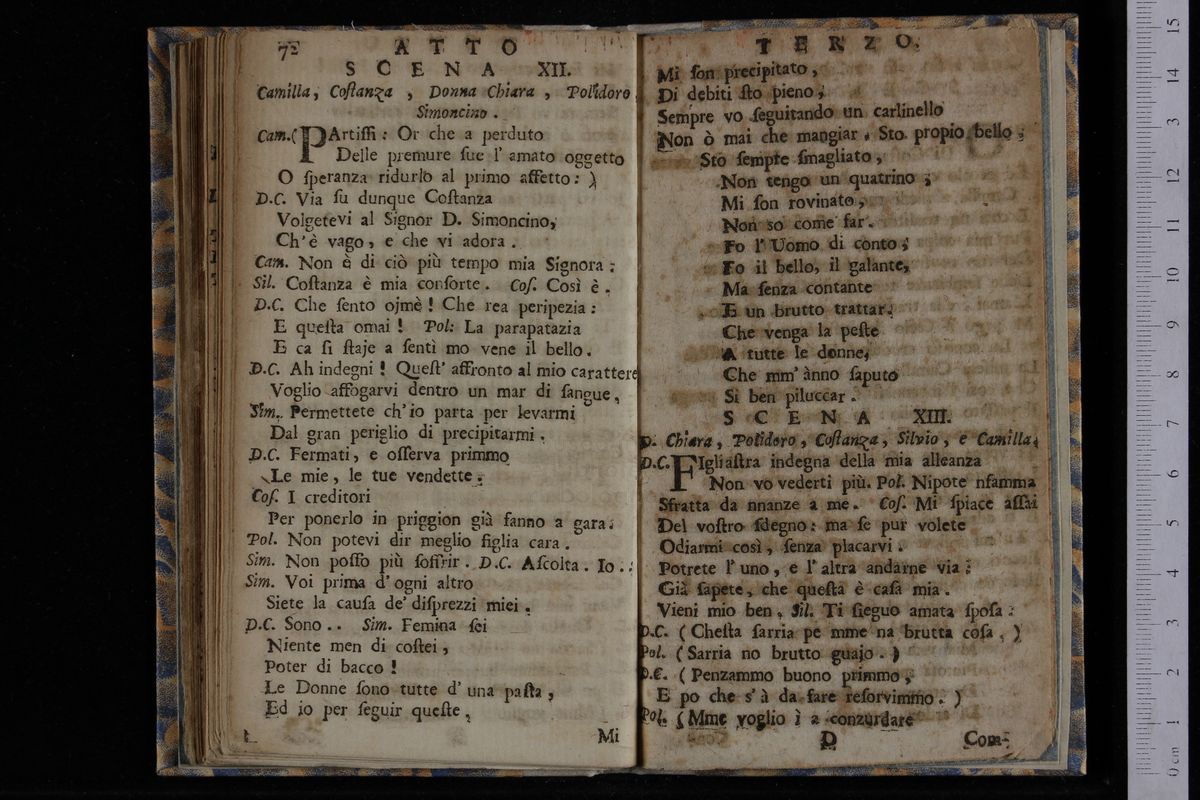 72 ATTO
SCENA XII.
Camilla, Coſtanza, Donna Chiara, Polidoro
Simoncino.
Cam. (PArtiſſi: Or che a perduto
Delle premure ſue l'amato oggetto
O ſperanza ridurlo al primo affetto: )
D.C. Via ſu dunque Coſtanza
Volgetevi al Signor D. Simoncino,
Ch'è vago, e che vi adora.
Cam. Non è di ciò più tempo mia Signora:
Sil. Coſtanza è mia conſorte. Coſ. Così è.
D.C. Che ſento ojmè! Che rea peripezia:
E queſta omai! Pol: La parapatazia
E ca ſi ſtaje a ſentì mo vene il bello.
D.C. Ah indegni! Queſt' affronto al mio carattere
Voglio affogarvi dentro un mar di ſangue,
Sim. Permettete ch'io parta per levarmi
Dal gran periglio di precipitarmi.
D.C. Fermati, e oſſerva primmo
Le mie, le tue vendette.
Coſ. I creditori
Per ponerlo in priggion già fanno a gara:
Pol. Non potevi dir meglio figlia cara.
Sim. Non poſſo più ſoffrir. D.C. Aſcolta. Io..:
Sim. Voi prima d'ogni altro
Siete la cauſa de' diſprezzi miei.
D.C. Sono.. Sim. Femina ſei
Niente men di coſtei,
Poter di bacco!
Le Donne ſono tutte d'una paſta,
Ed io per ſeguir queſte,
Mi
TERZO.
Mi ſon precipitato,
Di debiti ſto pieno;
Sempre vo ſeguitando un carlinello
Non ò mai che mangiar. Sto propio bello;
Sto ſempre ſmagliato,
Non tengo un quatrino;
Mi ſon rovinato,
Non so come far.
Fo l'Uomo di conto;
Fo il bello, il galante,
Ma ſenza contante
E un brutto trattar:
Che venga la peſte
A tutte le donne,
Che mm' ànno ſaputo
Si ben piluccar.
SCENA XIII.
D. Chiara, Polidoro, Coſtanza, Silvio, e Camilla.
D.C. FIgliaſtra indegna della mia alleanza
Non vo vederti più. Pol. Nipote nfamma
Sfratta da nnanze a me. Coſ. Mi ſpiace aſſai
Del voſtro ſdegno: ma ſe pur volete
Odiarmi così, ſenza placarvi.
Potrete l'uno, e l'altra andarne via:
Già ſapete, che queſta è caſa mia.
Vieni mio ben. Sil. Ti ſieguo amata ſpoſa:
D.C. (Cheſta ſarria pe mme na brutta coſa.)
Pol. (Sarria no brutto guajo.)
D.C. (Penzammo buono primmo,
E po che s'à da fare reſorvimmo.)
Pol. (Mme voglio ì a conzurdare
D Com-
0 cm 1 2 3 4 5 6 7 8 9 10 11 12 13 14 15